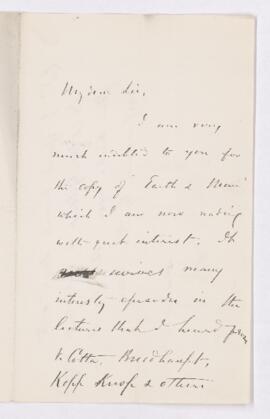 My dear Sir,
I am very
much indebted to you for
the copy of Earth & Man
which I am now reading
with great interest. It
revives many
intensely episodes in the
lectures that I heard from
V. Cotta, Breithaupt,
Kopp Knop & others